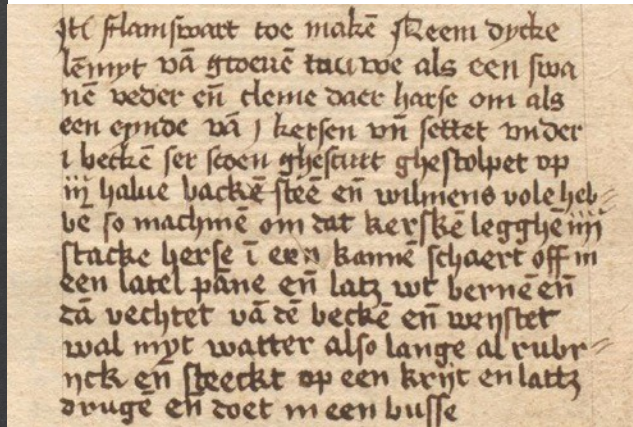 Itē flamswart toe makē Neem dycke
lēmyt vā groenē tauwe als een swa
nē veder eñ cleme daer harse om als
een eynde vā j kersen vñ settet vnder
i beckē ser scoen ghescurt ghestolpet op
iij halue backē steē eñ wilmens vole heb⸗
bē so machmē om dat kerskē legghē iiij
stucke herse ī een kannē schaert off in
een latel pāne eñ latz wt bernē eñ
dā vechtet vā dē beckē eñ wrijstet
wal myt watter also lange al rubr⸗
ijck eñ steeckt op een krijt en lattz
drugē eñ doet in een busse